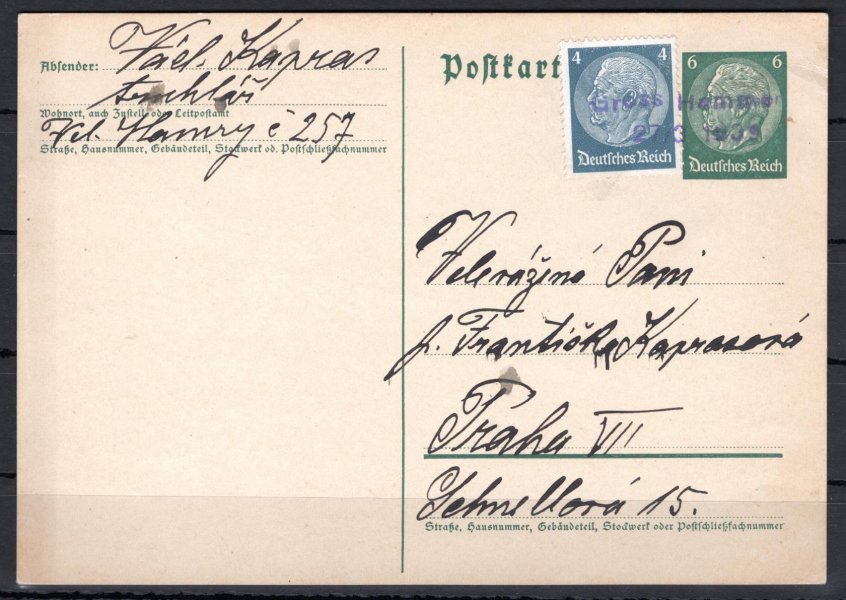 Absender: Václ. Kapras
truhlář
Wohnort, auch Zustell- oder Leitpostamt
Vel. Hamry č 257
Straße, Hausnummer, Gebäudeteil, Stockwerk od. Postschließfachnummer
Postkart
4 4
Deutsches Reich
6 6
Deutsches Reich
Gross Hammer
27 3 1939
Velevážená Paní
p. Františka Kaprasová
Praha VII
Schnellová 15.
Straße, Hausnummer, Gebäudeteil, Stockwerk oder Postschließfachnummer